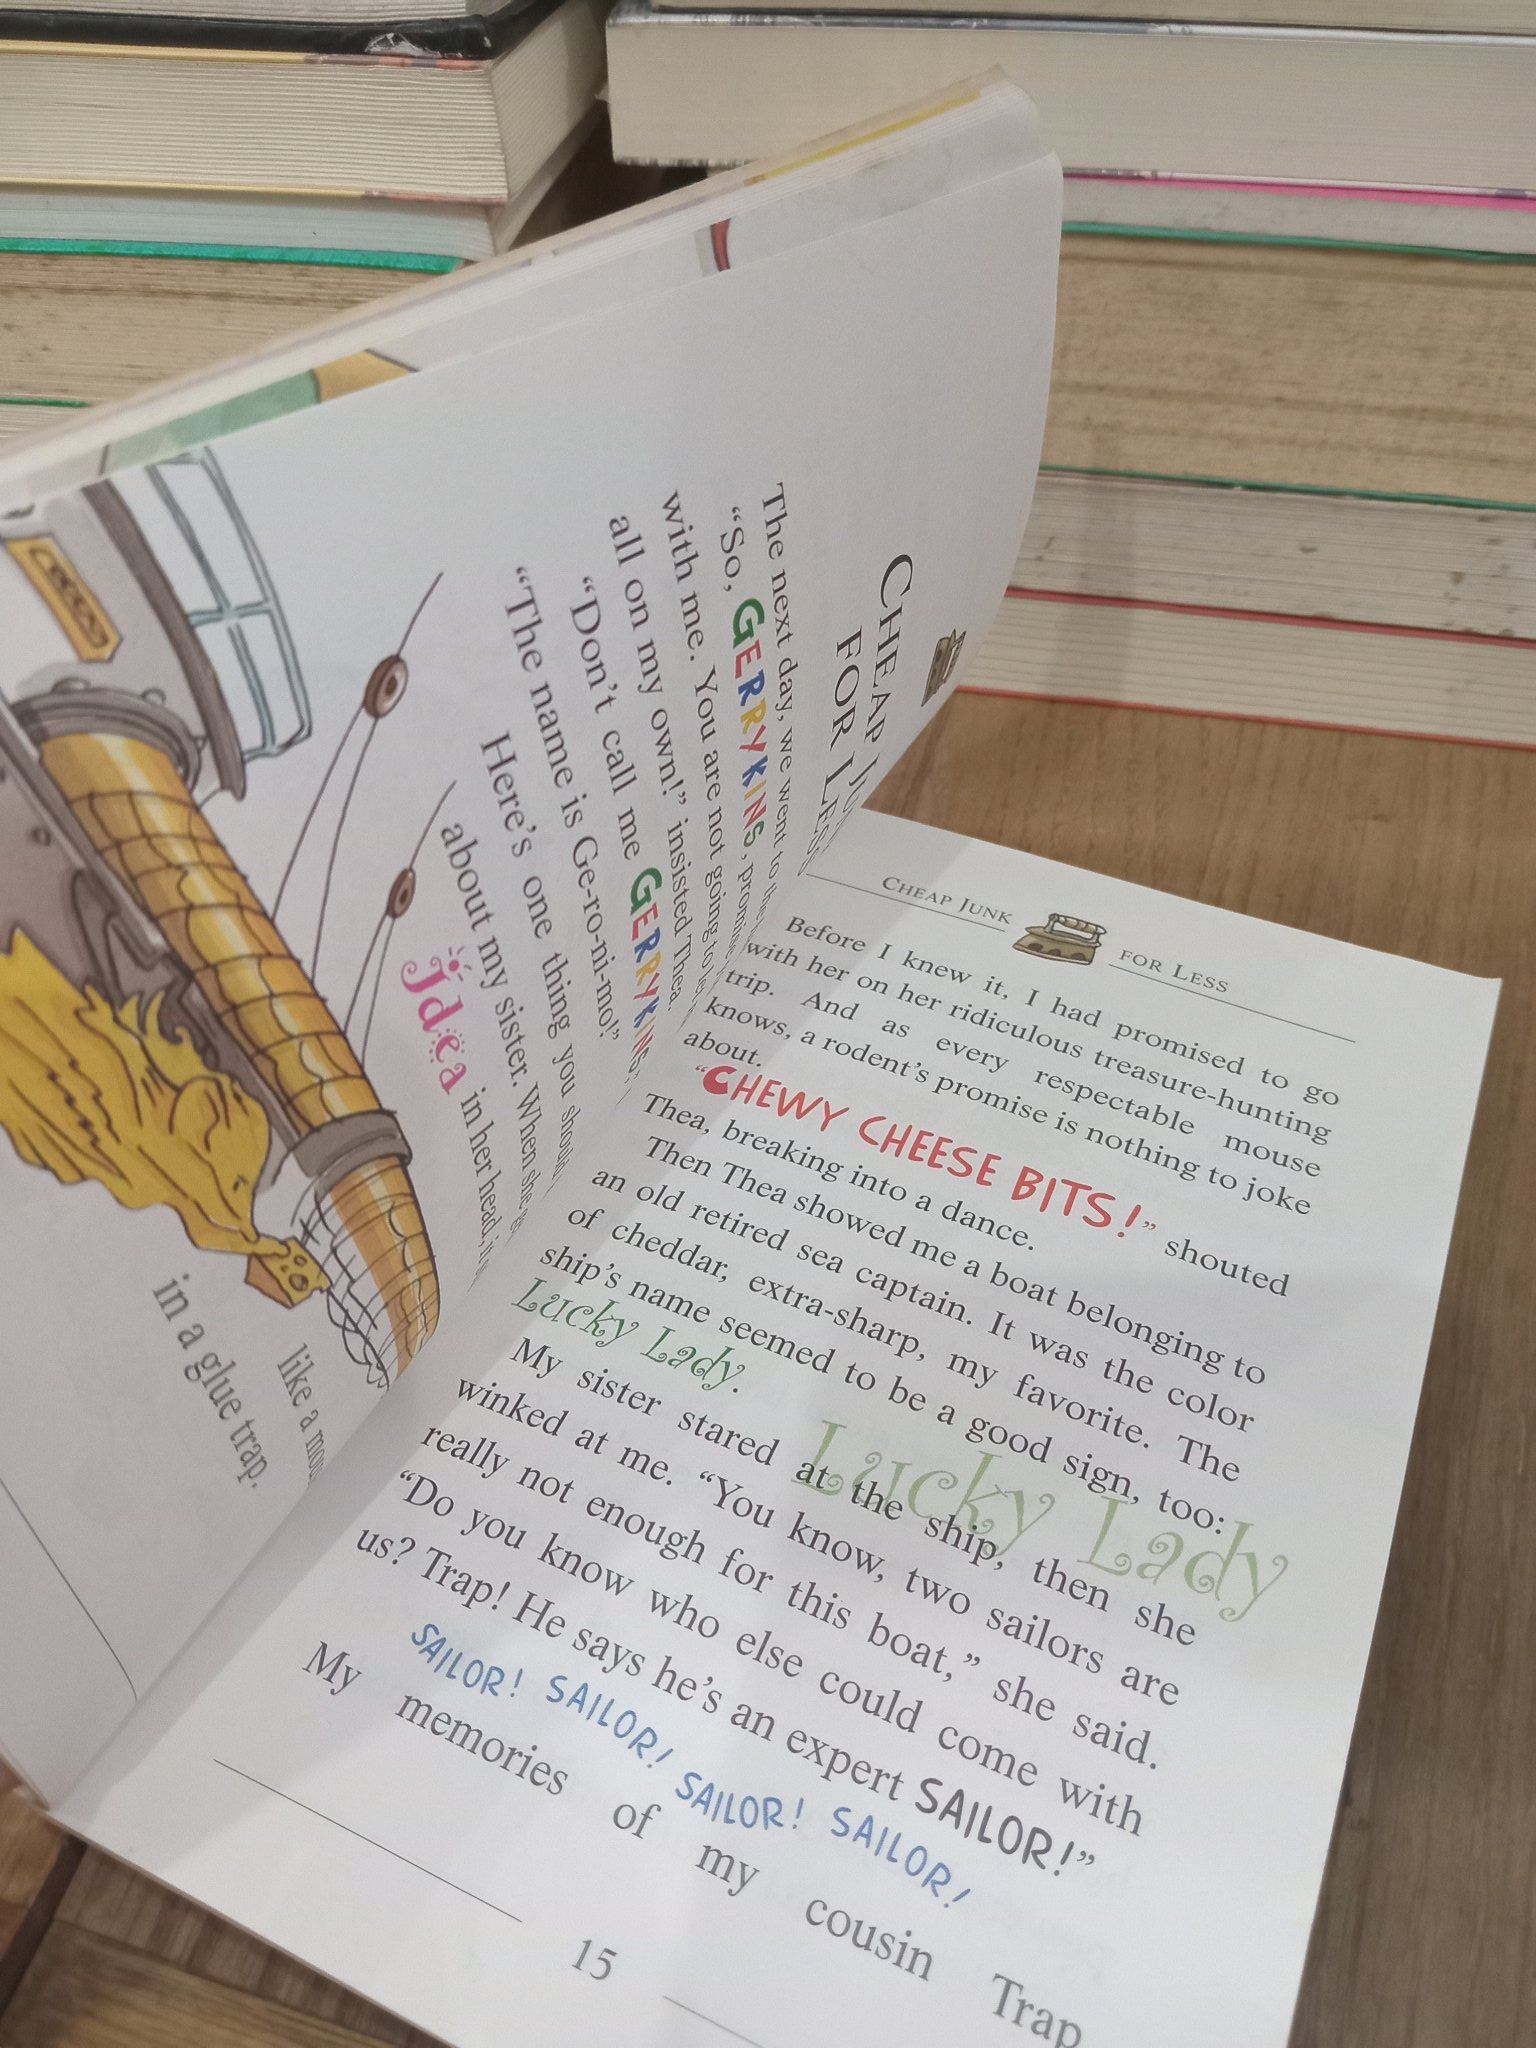 CHEAP
FOR LESS
The next day, we went to the
"So, GERRYKINS, promise
with me. You are not going to let
all on my own!" insisted Thea.
"Don't call me GERRYKINS,
"The name is Ge-ro-ni-mo!"
Here's one thing you should
about my sister. When she
Idea in her head, it
like a
in a glue trap.
CHEAP JUNK FOR LESS
Before I knew it, I had promised to go
with her on her ridiculous treasure-hunting
trip. And as every respectable mouse
knows, a rodent's promise is nothing to joke
about.
"CHEWY CHEESE BITS!" shouted
Thea, breaking into a dance.
Then Thea showed me a boat belonging to
an old retired sea captain. It was the color
of cheddar, extra-sharp, my favorite. The
ship's name seemed to be a good sign, too:
Lucky Lady.
Lucky Lady
My sister stared at the ship, then she
winked at me. "You know, two sailors are
really not enough for this boat," she said.
"Do you know who else could come with
us? Trap! He says he's an expert SAILOR!"
SAILOR! SAILOR! SAILOR! SAILOR!
My memories of my cousin Trap
15